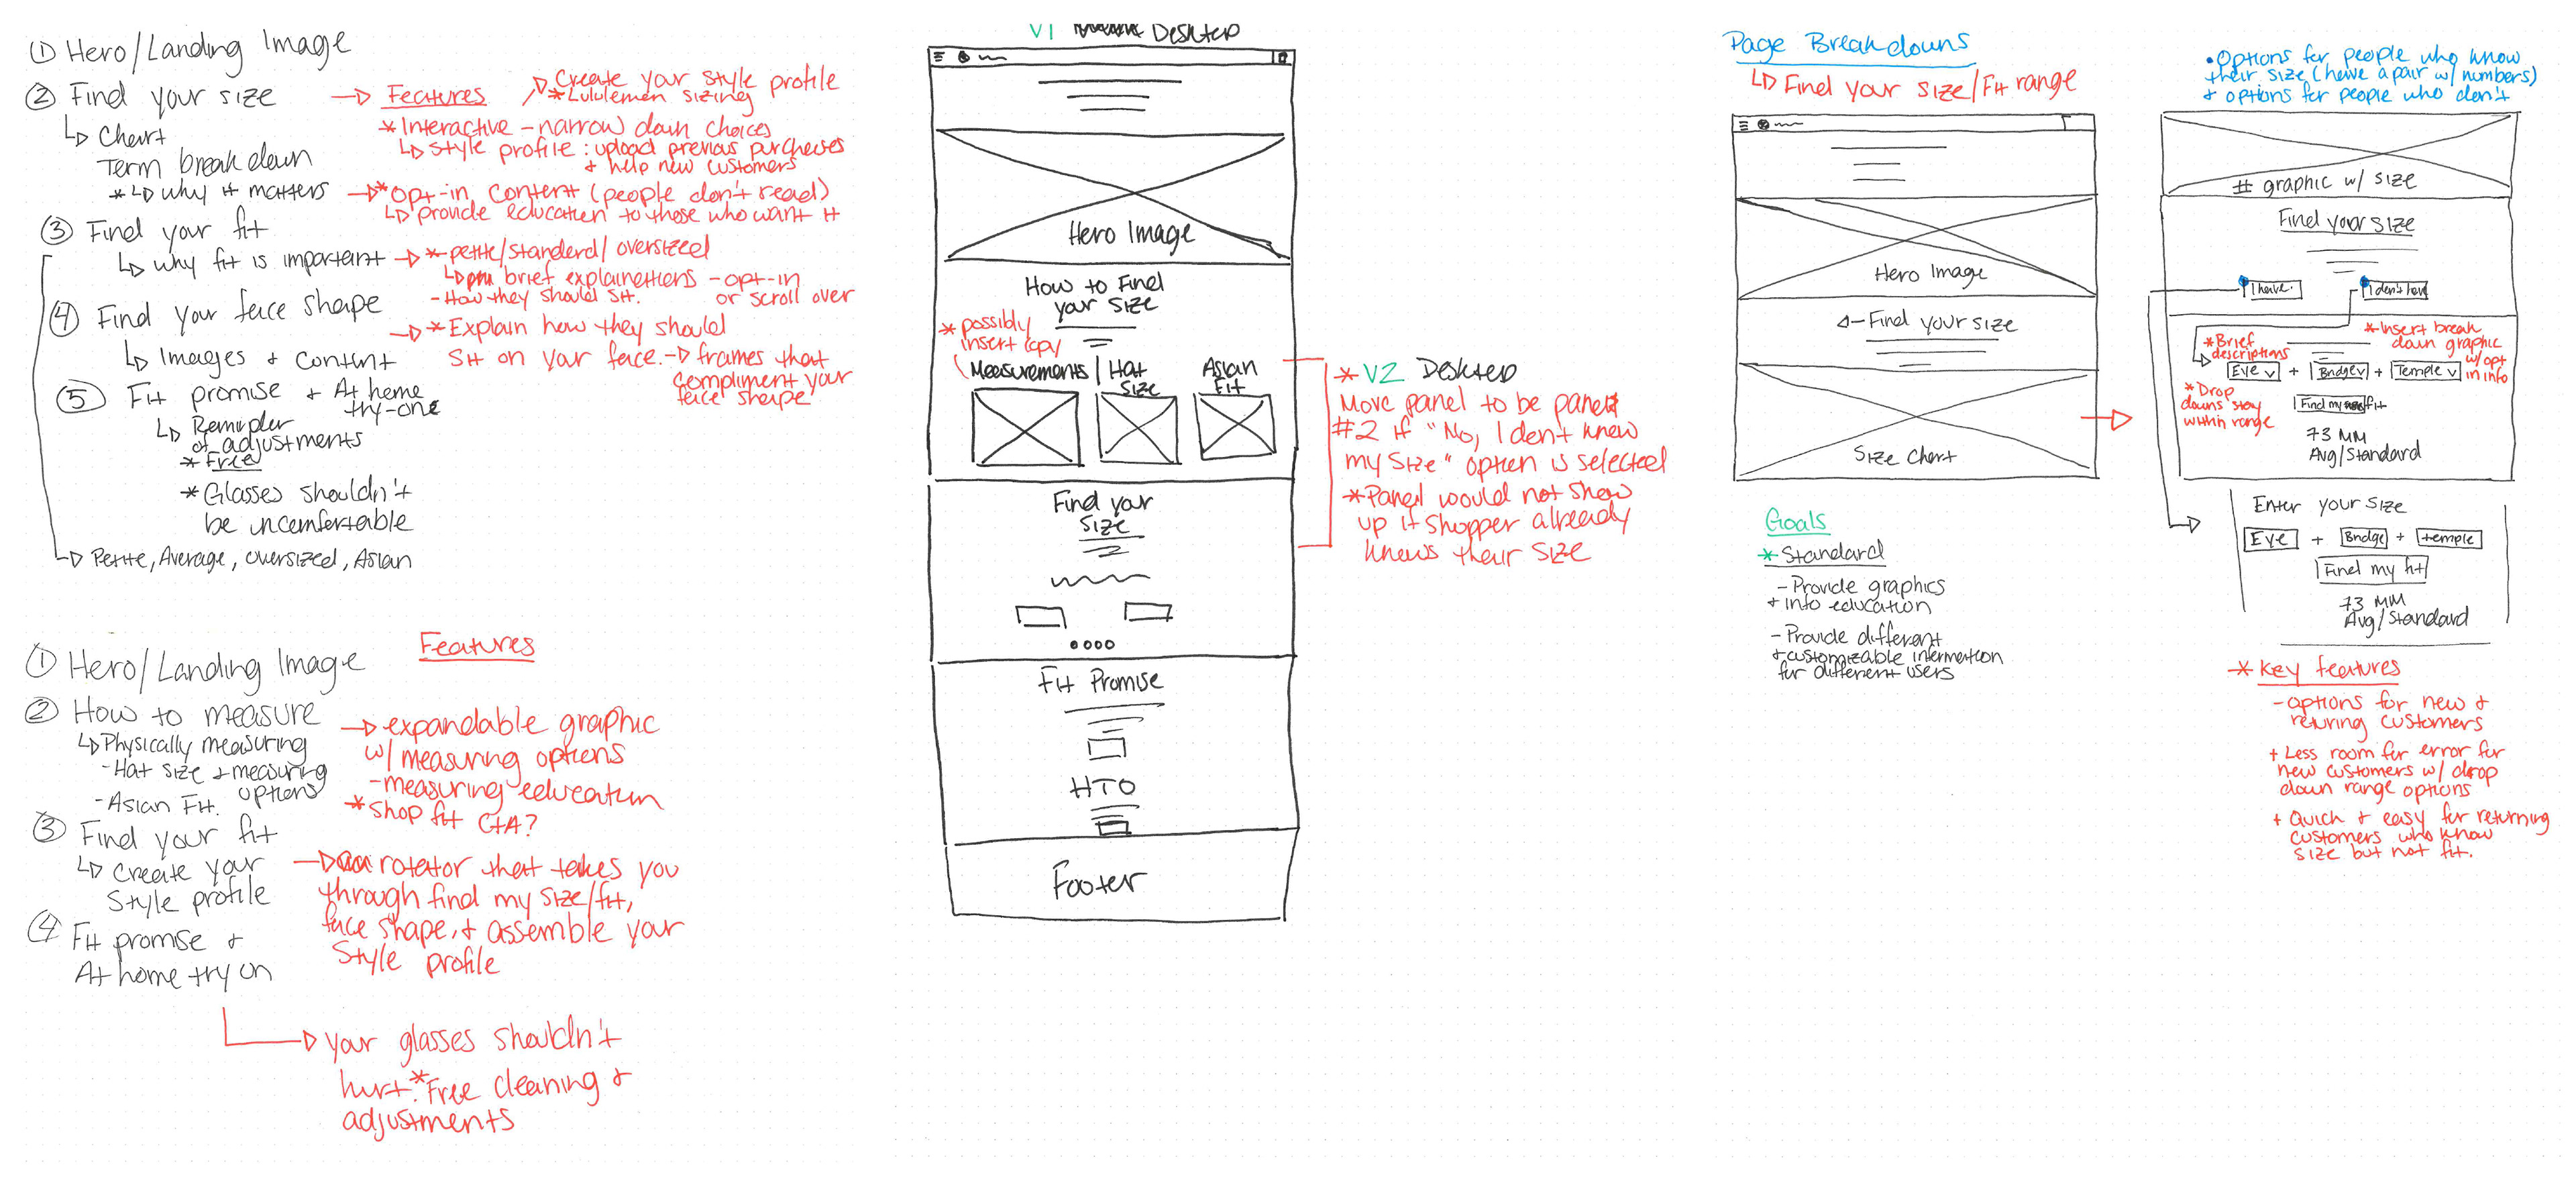 ① Hero/Landing Image
② Find your size
↳ Chart
Term breakdown
* ↳ why it matters
③ Find your fit
↳ why fit is important
④ Find your face shape
↳ Images + Content
⑤ Fit promise + At home
try-ons
↳ Reminder
of adjustments
* Free
* Glasses shouldn't
be uncomfortable
↳ Petite, Average, oversized, Asian
→ Features
Create your style profile
* Lululemon sizing
* Interactive - narrow down choices
↳ style profile: upload previous purchases
+ help new customers
→ * opt-in content (people don't read)
↳ provide education to those who want it
→ * petite/standard/oversized
↳ brief explainations - opt-in
- How they should sit. or scroll over
→ * Explain how they should
sit on your face. → frames that
compliment your
face shape
① Hero/Landing Image
② How to measure
↳ Physically measuring
- Hat size + measuring
options
- Asian Fit.
③ Find your fit
↳ create your
Style profile
④ Fit promise +
At home try on
Features
→ expandable graphic
w/ measuring options
- measuring education
* Shop fit CTA?
→ rotator that takes you
through find my size/fit,
face shape, + assemble your
Style profile
→ your glasses shouldn't
hurt. * Free cleaning +
adjustments
V1 Desktop
Hero Image
How to Find
your size
* possibly
insert copy
Measurements | Hat
Size
Asian
Fit
Find your
size
Fit Promise
HTO
Footer
* V2 Desktop
Move panel to be panel
#2 if "No, I don't know
my size" option is selected
* Panel would not show
up if shopper already
knows their size
Page Breakdowns
↳ Find your size/Fit range
Hero Image
Find your size
Size Chart
Goals
* Standard
- Provide graphics
+ info education
- Provide different
+ customizable information
for different users
• Options for people who know
their size (have a pair w/ numbers)
+ options for people who don't
# graphic w/ size
Find your size
I have.
I don't have
* Brief
descriptions
* Insert break
down graphic
w/ opt
in info
Eye v + Bridge v + Temple v
* Drop
downs stay
within range
Find my fit
73 MM
Avg/Standard
Enter your size
Eye + Bridge + temple
Find my fit
73 MM
Avg/Standard
* Key features
- options for new +
returing customers
+ Less room for error for
new customers w/ drop
down range options
+ Quick + easy for returning
customers who know
size but not fit.